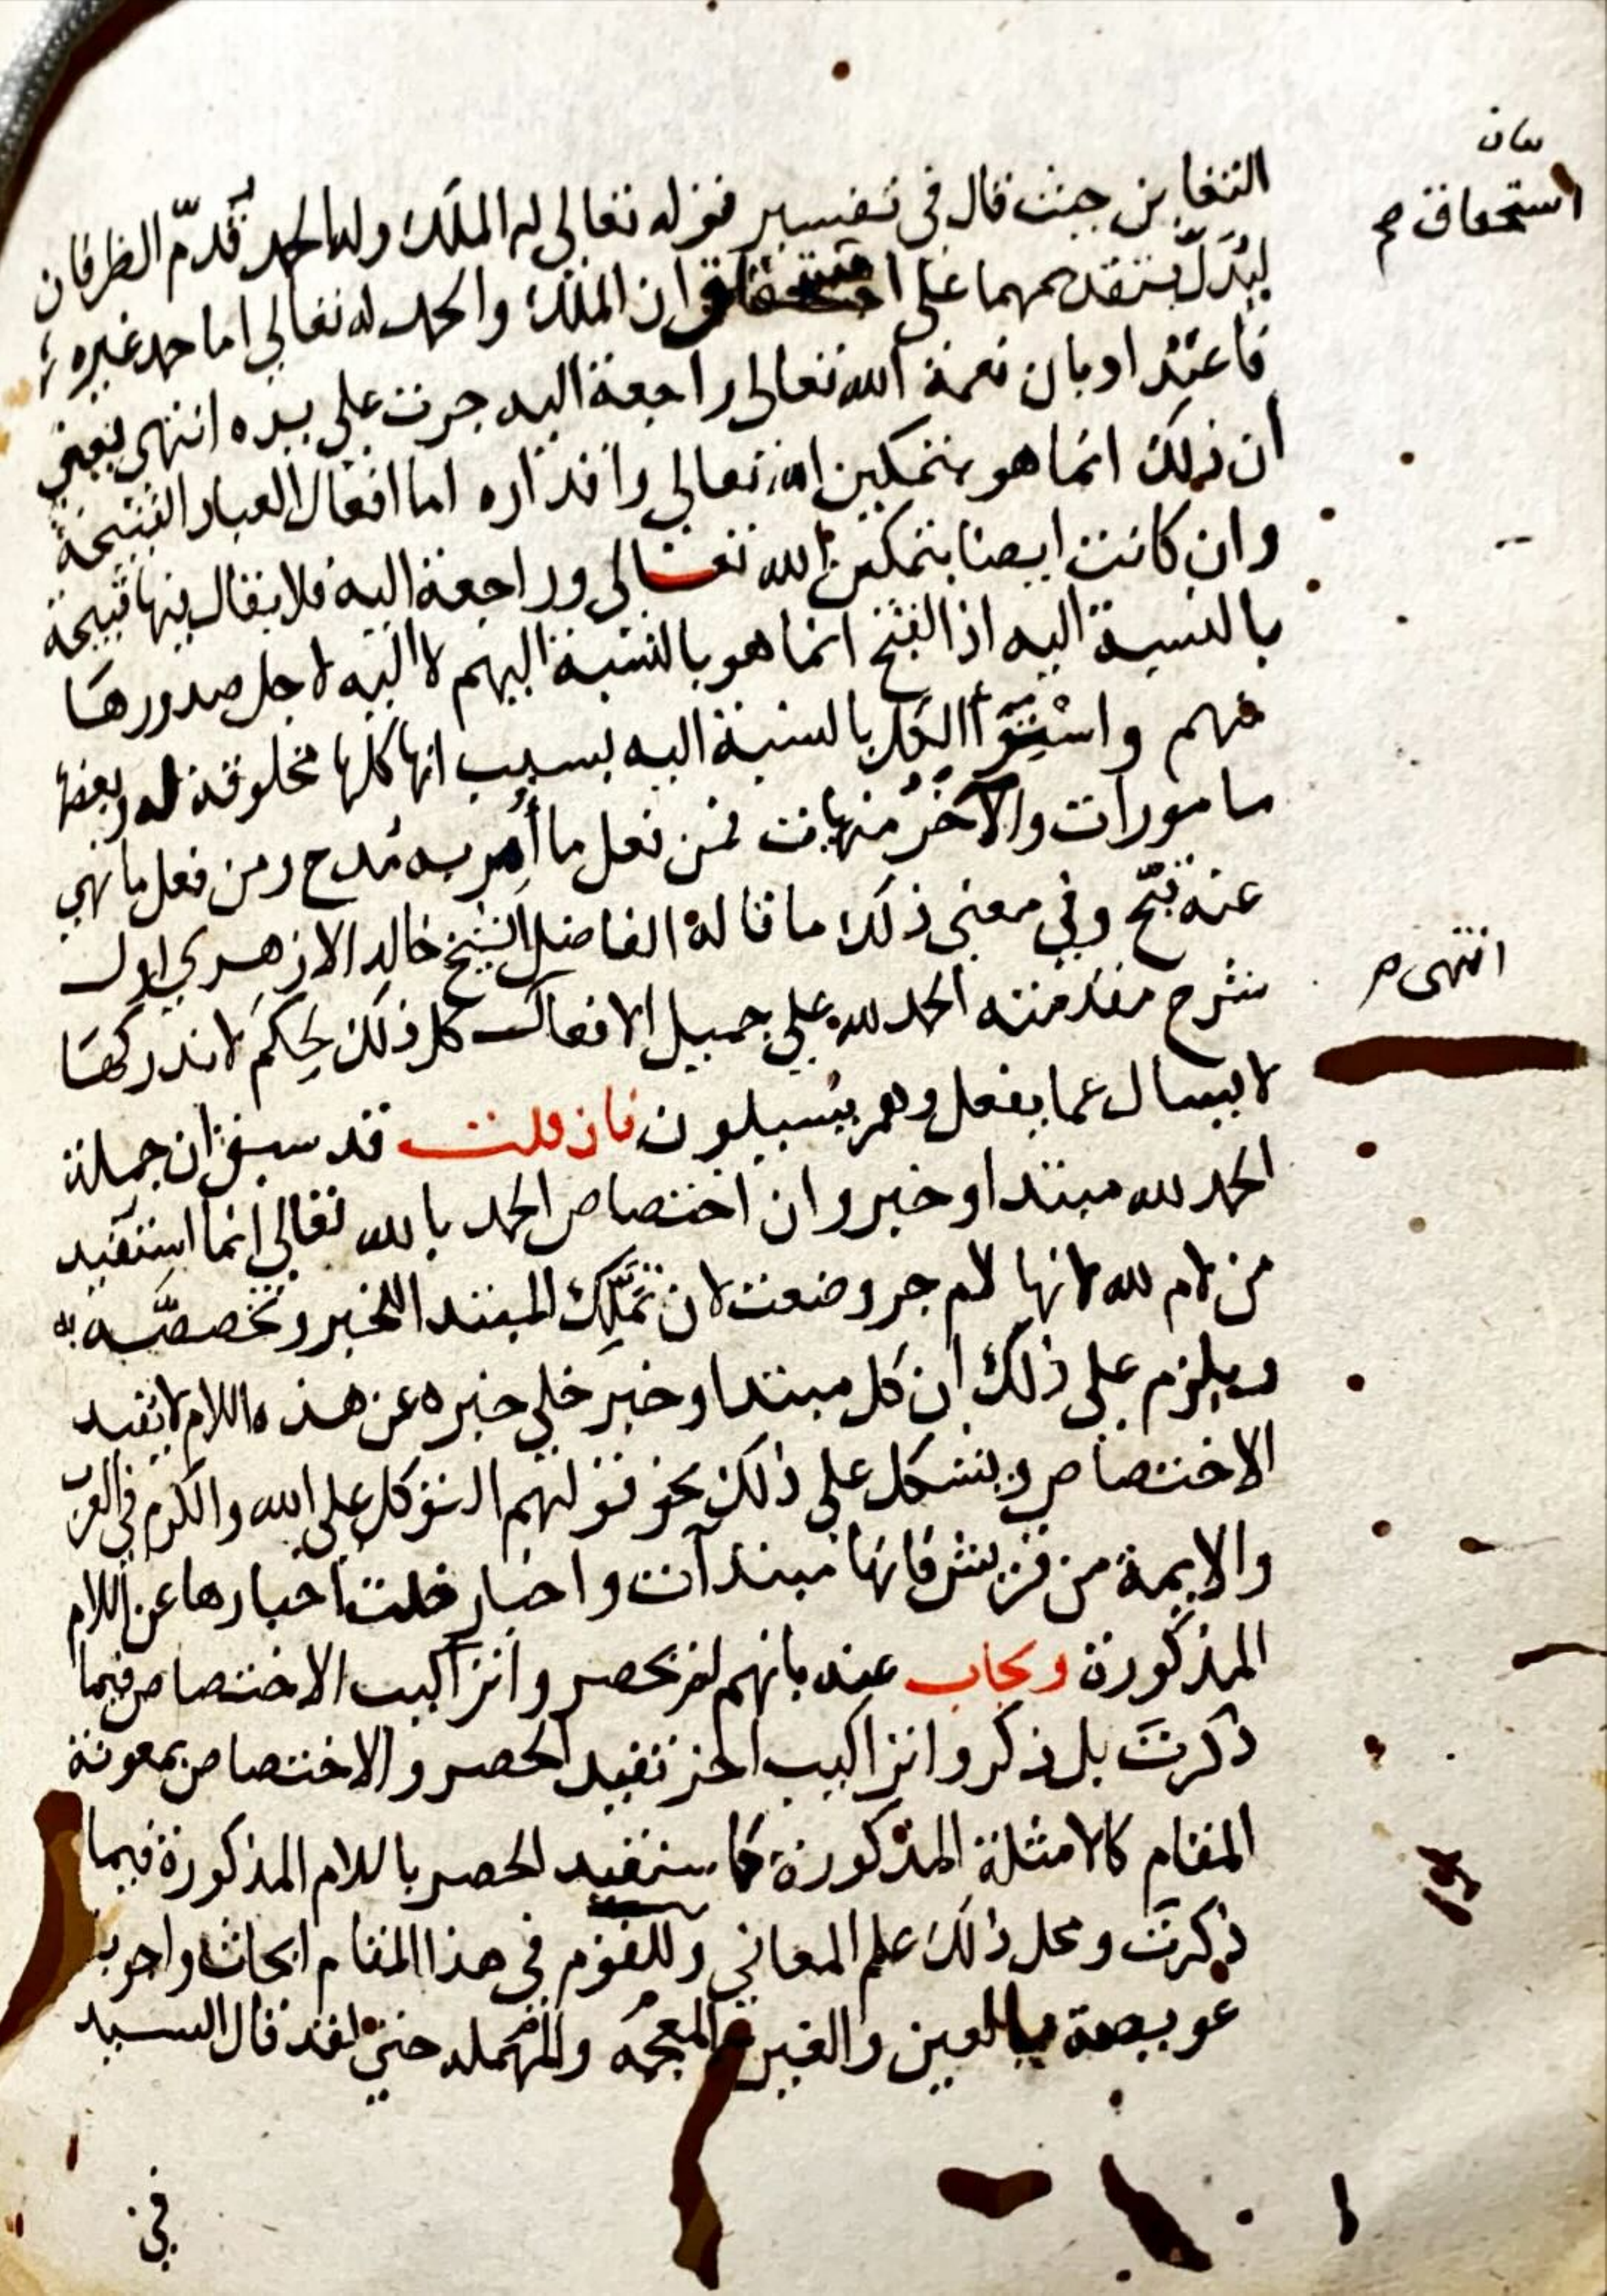 بيان
استحقاق صح
التغابن حيث قال في تفسير قوله تعالى له الملك وله الحمد قدّم الظرفان
ليدل بتقدمهما على ان الملك والحمد له تعالى اما حمد غيره
فاعتدادبان نعمة الله تعالى راجعة اليه جرت على يده انتهى يعني
أن ذلك انما هو بتمكين الله تعالى واقداره اما افعال العباد القبيحة
وان كانت ايضا بتمكين الله تعالى وراجعة اليه فلا يقال فيها قبيحة
بالنسبة اليه اذ القبح انما هو بالنسبة اليهم لا اليه لاجل صدورها
منهم واستوا الكل بالنسبة اليه بسبب انها كلها مخلوقة له وبعضها
مامورات والآخر منهيات فمن فعل ما أمر به مدح ومن فعل ما نهي
عنه قبّح وفي معنى ذلك ما قاله الفاضل الشيخ خالد الازهري اول
شرح مقدمته الحمد لله على جميل الافعال كل ذلك لحِكَم لا ندركها
انتهى صح
لا يسال عما يفعل وهم يسيلون فان قلت قد سبق ان جملة
الحمد لله مبتدا وخبر وان اختصاص الحمد بالله تعالى انما استفيد
من لام لله لانها لام جر وضعت لان تملّك المبتدا للخبر وتخصصه به
ويلزم على ذلك ان كل مبتدا وخبر خلي خبره عن هذه اللام لا تفيد
الاختصاص ويشكل على ذلك نحو قولهم التوكل على الله والكرم في العرب
والايمة من قريش فانها مبتدآت واخبار خلت اخبارها عن اللام
المذكورة ويجاب عنه بانهم لم يحصروا تراكيب الاختصاص فيما
ذكرتَ بل ذكروا تراكيب اخر تفيد الحصر والاختصاص بمعونة
المقام كالامثلة المذكورة كما ستفيد الحصر باللام المذكورة فيما
ذكرتَ ومحل ذلك علم المعاني وللقوم في هذا المقام ابحاث واجوبة
عويصة بالعين والغين المعجمه والمهمله حتى لقد قال السيد
في